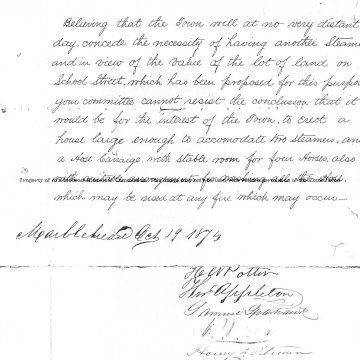 Believing that the Town will at no very distant
day, concede the necessity of having another Steamer
and in view of the value of the lot of land on
School Street, which has been proposed for this purpose
your committee cannot resist the conclusion that it
would be for the interest of the Town, to erect a
house large enough to accomodate two steamers, and
a Hose Carriage with stable room for four Horses, also
which may be used at any fire which may occur—
Marblehead Oct 19 1874
Appleton